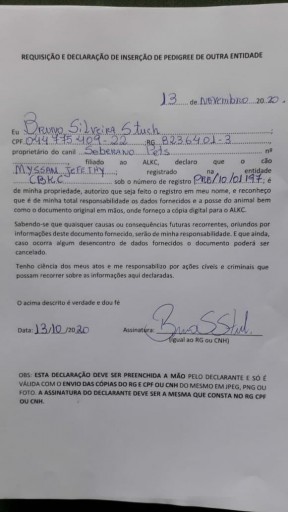 REQUISIÇÃO E DECLARAÇÃO DE INSERÇÃO DE PEDIGREE DE OUTRA ENTIDADE
13 de novembro 20 20.
Eu Bruno Silveira Stuch
CPF 044775409-22 RG 8236401-3
proprietário do canil Soberano Pets nº
filiado ao ALKC, declaro que o cão
MYSSAN JEFFTHY registrado na entidade
CBKC sob o número de registro PRE/10/01197, é
de minha propriedade, autorizo que seja feito o registro em meu nome, e reconheço
que é de minha total responsabilidade os dados fornecidos e a posse do animal bem
como o documento original em mãos, onde forneço a cópia digital para o ALKC.
Sabendo-se que quaisquer causas ou consequências futuras recorrentes, oriundos por
informações deste documento fornecido, serão de minha responsabilidade. E que ainda,
caso ocorra algum desencontro de dados fornecidos o documento poderá ser
cancelado.
Tenho ciência dos meus atos e me responsabilizo por ações cíveis e criminais que
possam recorrer sobre as informações aqui declaradas.
O acima descrito é verdade e dou fé
Data: 13/10/2020 Assinatura:
(igual ao RG ou CNH)
OBS: ESTA DECLARAÇÃO DEVE SER PREENCHIDA A MÃO PELO DECLARANTE E SÓ É
VÁLIDA COM O ENVIO DAS CÓPIAS DO RG E CPF OU CNH DO MESMO EM JPEG, PNG OU
FOTO. A ASSINATURA DO DECLARANTE DEVE SER A MESMA QUE CONSTA NO RG CPF
OU CNH.